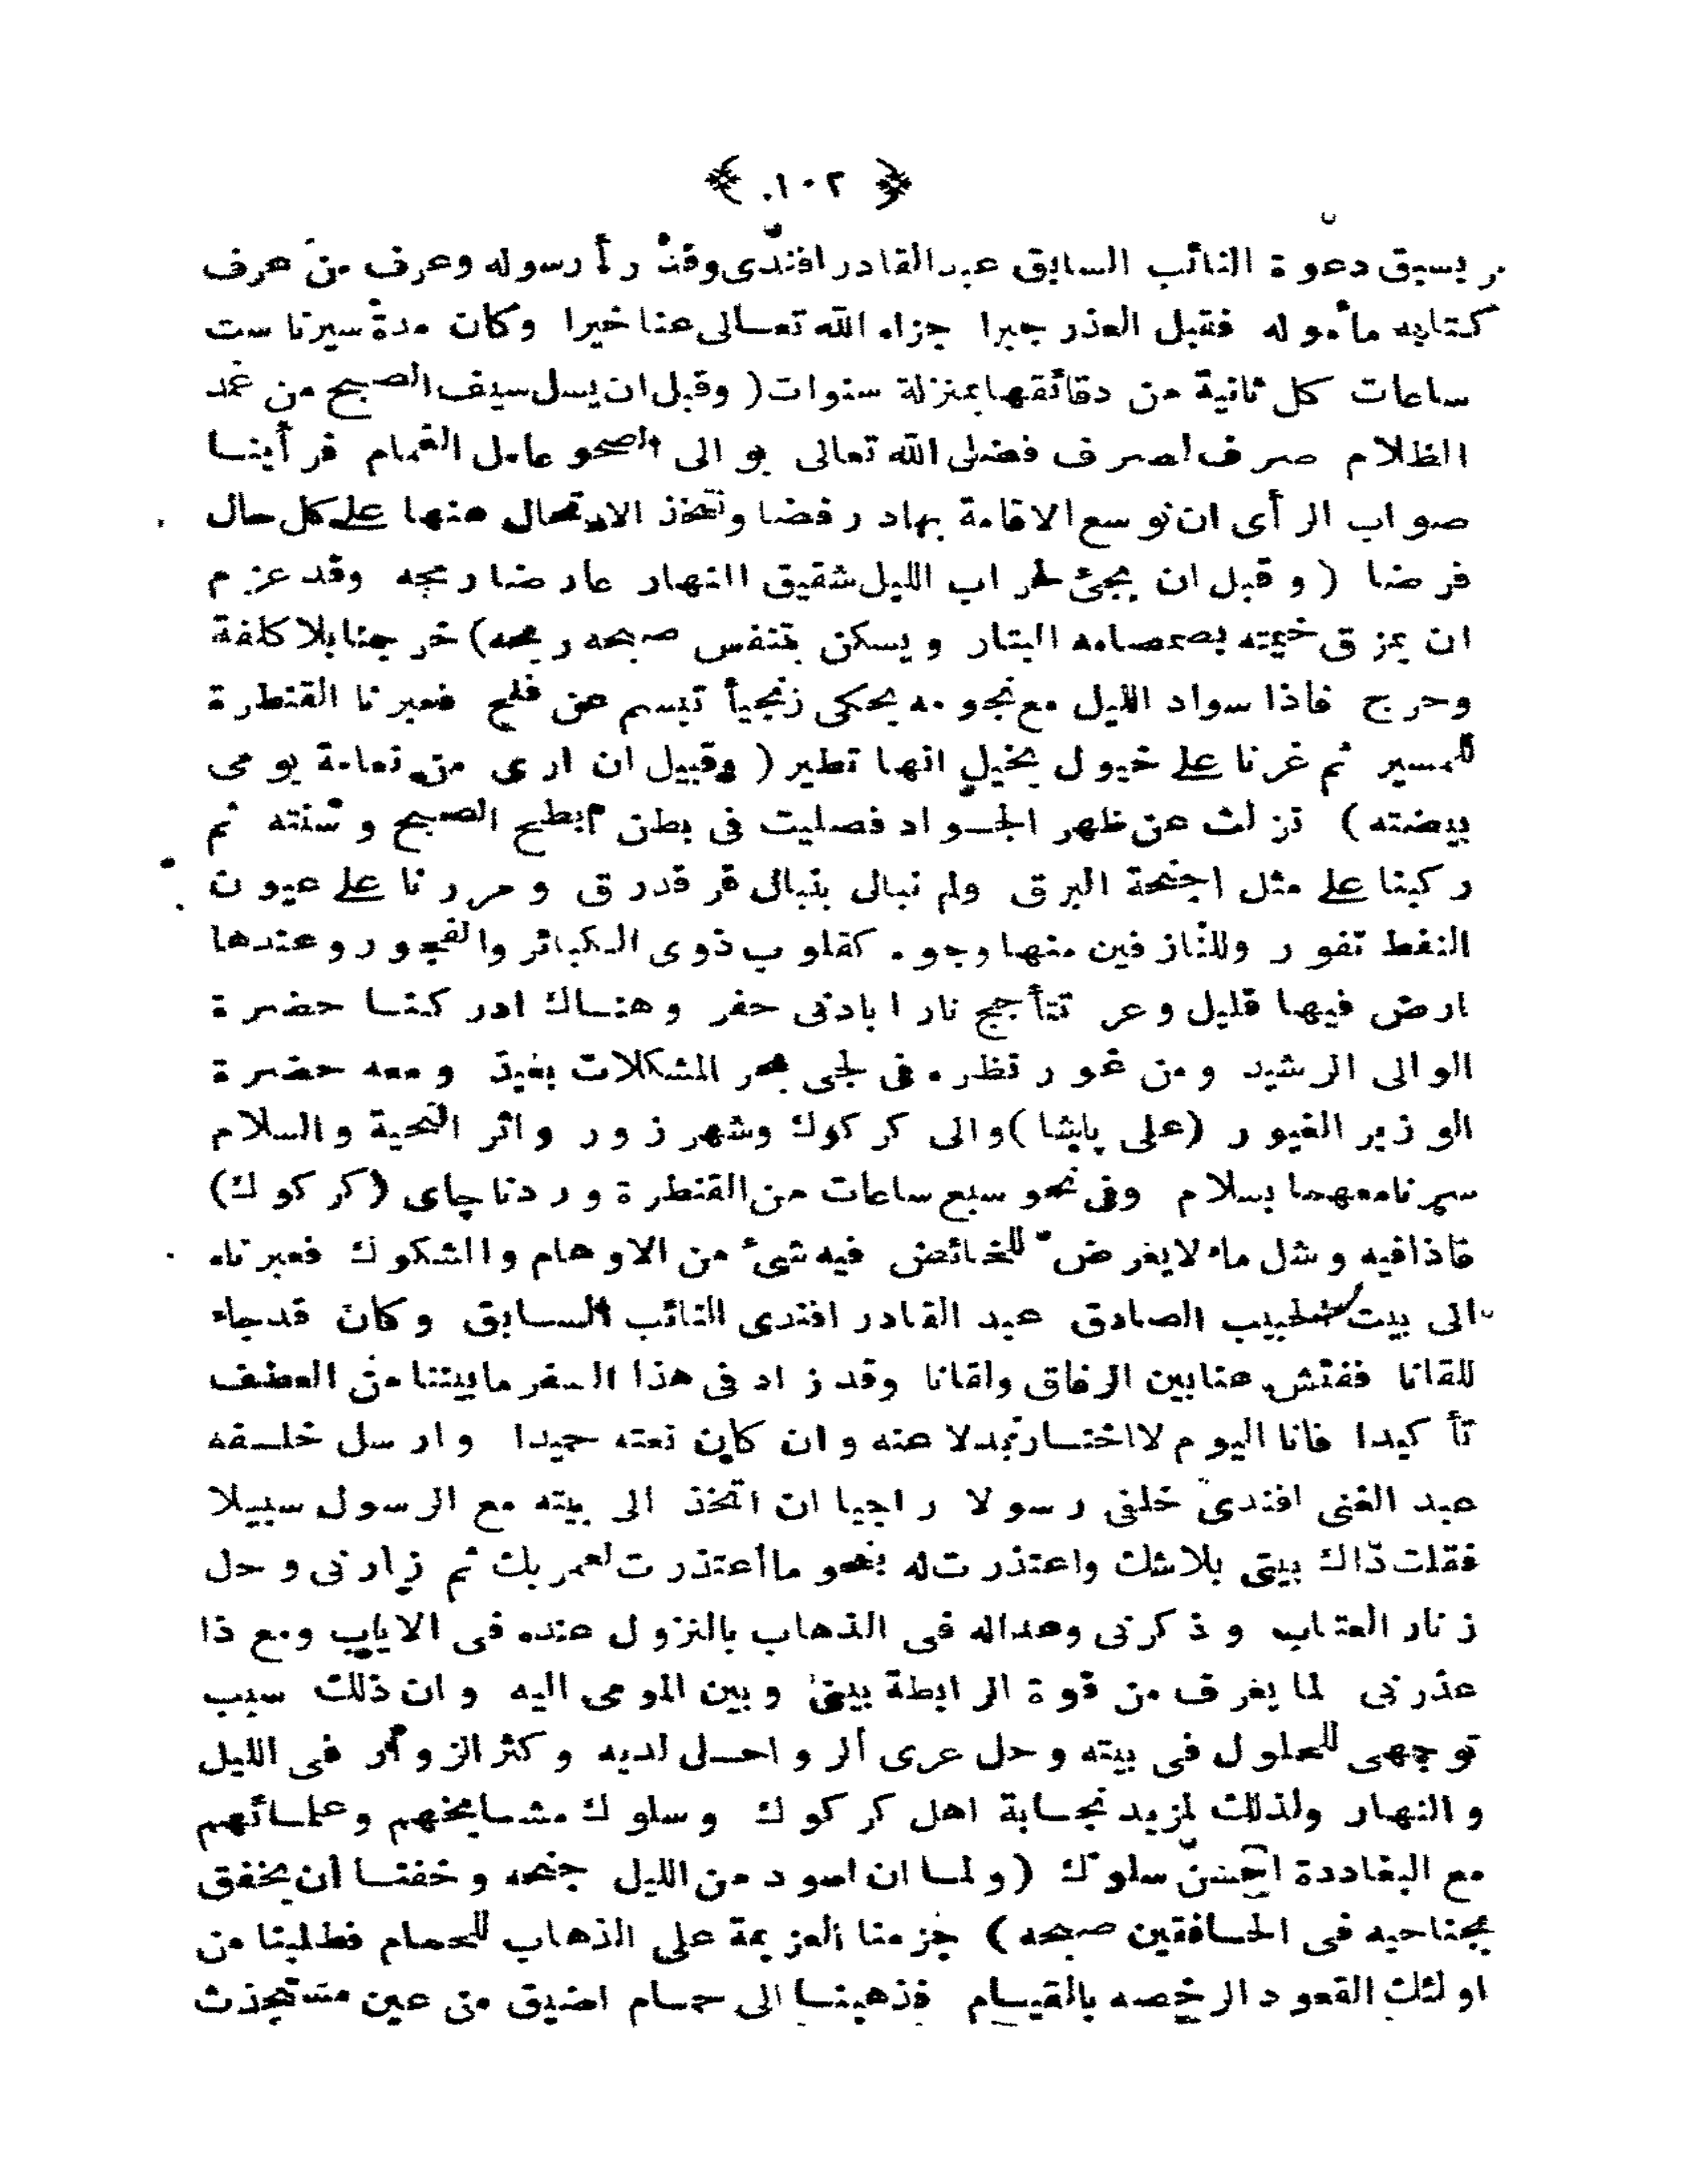 ﴿ ١٠٢ ﴾
بسبق دعوة النائب السابق عبدالقادر افندى وقد رأ رسوله وعرف من عرف
كتابه مأموله فقبل العذر جبرا جزاه الله تعالى عنا خيرا وكان مدة سيرنا ست
ساعات كل ثانية من دقائقها بمنزلة سنوات ( وقبل ان يسل سيف الصبح من غمد
الظلام صرف لصرف فضل الله تعالى بوالى الصحو عامل الغمام فرأينا
صواب الرأى ان نوسع الاقامة بهاد رفضا ونتخذ الارتحال عنها على كل حال
فرضا ( وقبل ان يجئ لحراب الليل شقيق النهار عارضا رمحه وقد عزم
ان يمزق خيمته بصمصامه البتار ويسكن بتنفس صبحه ريحه ) خرجنا بلا كلفة
وحرج فاذا سواد الليل مع نجومه يحكى زنجيأ تبسم عن فلج فعبرنا القنطرة
للمسير ثم غرنا على خيول يخيل انها تطير ( وقبيل ان ارى من نعامة يومى
بيضته ) نزلت عن ظهر الجواد فصليت فى بطن ابطح الصبح وسنته ثم
ركبنا على مثل اجنحة البرق ولم نبال بنبال قر قد رق ومررنا على عيون
النفط تفور وللنازفين منها وجوه كقلوب ذوى الكبائر والفجور وعندها
ارض فيها قليل وعر تتأجج نارا بادنى حفر وهناك ادركنا حضرة
الوالى الرشيد ومن غور نظره فى لجى بحر المشكلات بعيد ومعه حضرة
الوزير الغيور (على پاشا) والى كركوك وشهرزور واثر التحية والسلام
سرنا معهما بسلام وفى نحو سبع ساعات من القنطرة وردنا چاى (كركوك)
فاذا فيه وشل ماء لايعرض للخائض فيه شئ من الاوهام والشكوك فعبرناه
الى بيت الحبيب الصادق عبد القادر افندى النائب السابق وكان قد جاء
للقانا ففتش عنا بين الرفاق ولقانا وقد زاد فى هذا السفر ما بيننا من العطف
تأكيدا فانا اليوم لا اختار بدلا عنه وان كان نعته حميدا وارسل خلفه
عبد الغنى افندى خلفى رسولا راجيا ان اتخذ الى بيته مع الرسول سبيلا
فقلت ذاك بيتى بلا شك واعتذرت له بنحو ما اعتذرت لعمر بك ثم زارنى وحل
زنار العتاب وذكرنى وعدا له فى الذهاب بالنزول عنده فى الاياب ومع ذا
عذرنى لما يعرف من قوة الرابطة بينى وبين المومى اليه وان ذلك سبب
توجهى للحلول فى بيته وحل عرى الرواحل لديه وكثر الزوار فى الليل
والنهار ولذلك لمزيد نجابة اهل كركوك وسلوك مشايخهم وعلمائهم
مع البغاددة احسن سلوك ( ولما ان اسود من الليل جنحه وخفنا أن يخفق
بجناحيه فى الخافقين صبحه ) جزمنا العزيمة على الذهاب للحمام فطلبنا من
اولئك القعود الرخصه بالقيام فذهبنا الى حمام اضيق من عين مستجذث